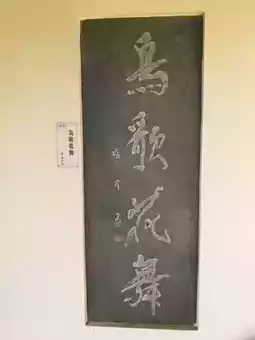 鳥歌花舞
鳥歌花舞